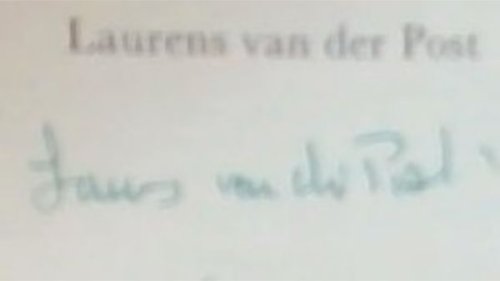 Laurens van der Post
Laurens van der Post